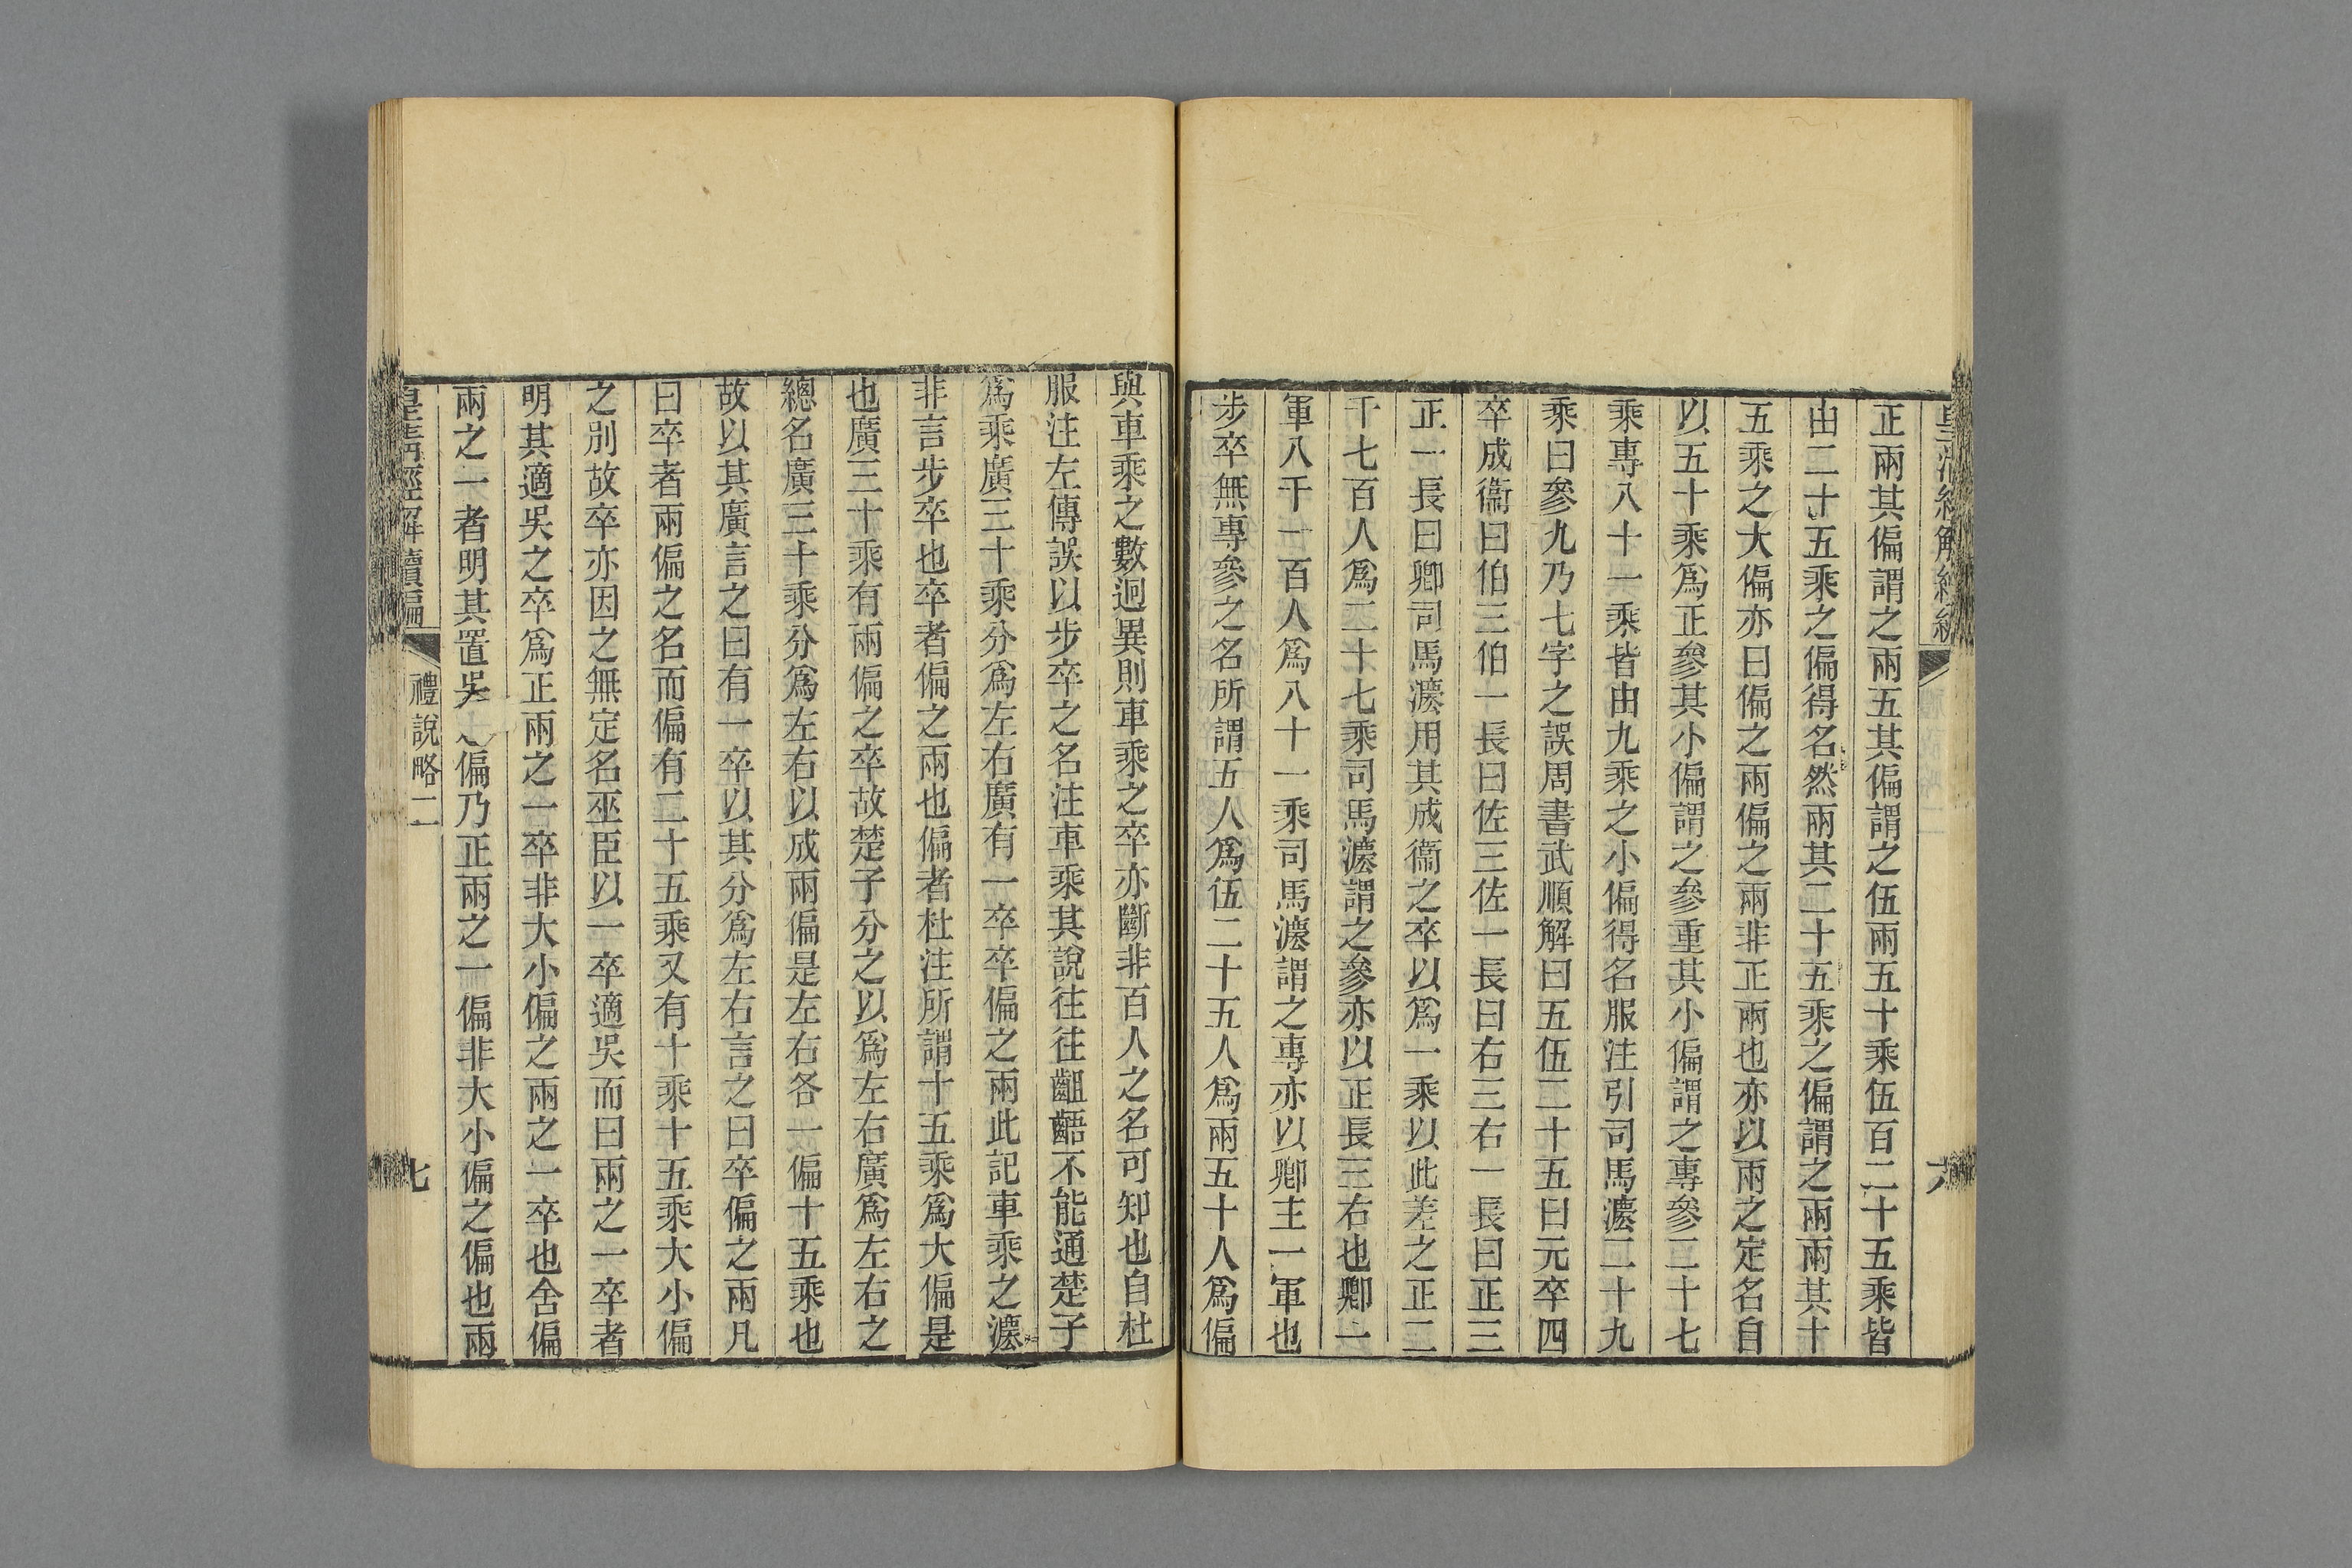 正兩其偏謂之兩五其偏謂之伍兩五十乘伍百二十五乘皆
由二十五乘之偏得名然兩其二十五乘之偏謂之兩兩其十
五乘之大偏亦曰偏之兩偏之兩非正兩也亦以兩之定名自
以五十乘爲正參其小偏謂之參重其小偏謂之專參二十七
乘專八十一乘皆由九乘之小偏得名服注引司馬灋二十九
乘曰參九乃七字之誤周書武順解曰五伍二十五曰元卒四
卒成衞曰伯三伯一長曰佐三佐一長曰右三右一長曰正三
正一長曰卿司馬灋用其成衞之卒以爲一乘以此差之正二
千七百人爲二十七乘司馬灋謂之參亦以正長三右也卿一
軍八千一百人爲八十一乘司馬灋謂之專亦以卿主一軍也
步卒無專參之名所謂五人爲伍二十五人爲兩五十人爲偏
與車乘之數迥異則車乘之卒亦斷非百人之名可知也自杜
服注左傳誤以步卒之名注車乘其說往往齟齬不能通楚子
爲乘廣三十乘分爲左右廣有一卒卒偏之兩此記車乘之灋
非言步卒也卒者偏之兩也偏者杜注所謂十五乘爲大偏是
也廣三十乘有兩偏之卒故楚子分之以爲左右廣爲左右之
總名廣三十乘分爲左右以成兩偏是左右各一偏十五乘也
故以其廣言之曰有一卒以其分爲左右言之曰卒偏之兩凡
曰卒者兩偏之名而偏有二十五乘又有十乘十五乘大小偏
之別故卒亦因之無定名巫臣以一卒適吳而曰兩之一卒者
明其適吳之卒爲正兩之一卒非大小偏之兩之一卒也舍偏
兩之一者明其置吳之偏乃正兩之一偏非大小偏之偏也兩
皇清經解續編
禮說略二
七